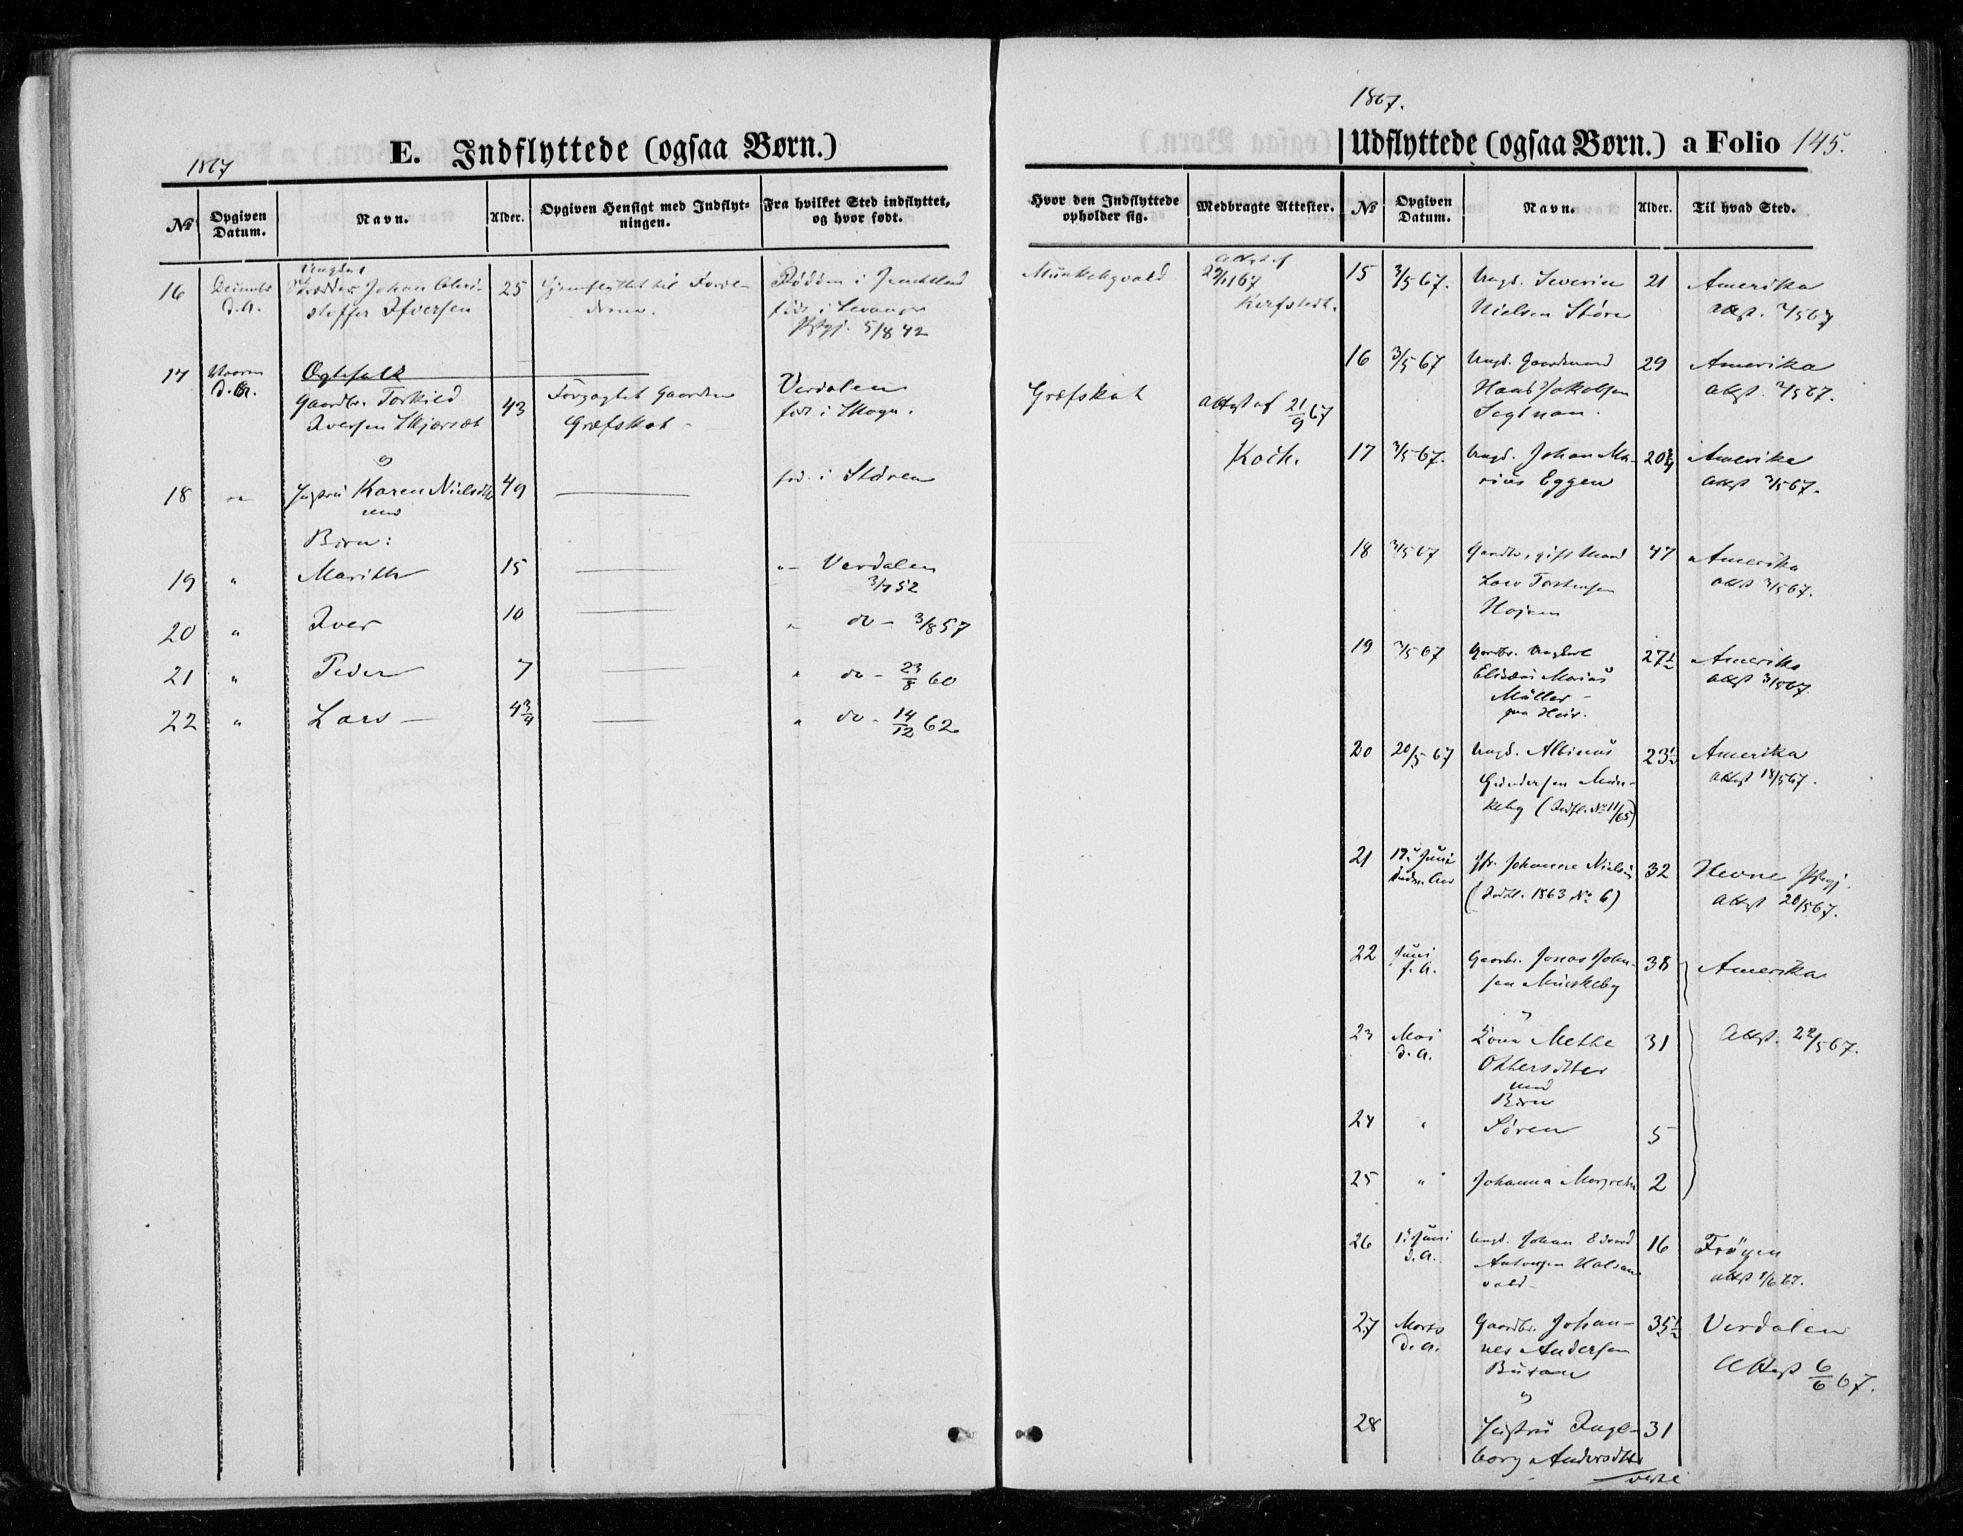 1867
E. Indflyttede (ogsaa Børn.)
№ Opgiven Datum. Navn. Alder. Opgiven Hensigt med Indflytningen. Fra hvilket Sted indflyttet, og hvor født.
16 Decembr d.A. Ungkarl Johan Chri-
stoffer Ifversen 25
født i Levanger
Pstgj. 5/8 42
17 Vaaren d.A. Ægtefolk
Gaardbr. Torkild
Iversen 43 Forpagtet Gaarden
Græfskat - Verdalen
fød. i Skogn.
og
18 Hustru Karen Nielsdtr 49 fød. i Støren
med
Børn:
19 " Marith 15 Verdalen
3/7 52
20 " Iver 10 do - 3/8 57
21 " Peder 7 " do - 23/8 60
22 " Lars - 4 3/4 " do - 14/12 62
1867.
Udflyttede (ogsaa Børn.) a Folio 145.
Hvor den Indflyttede opholder sig. Medbragte Attester. № Opgiven Datum. Navn. Alder. Til hvad Sted.
Attest af
Græfskat Attest af 21/9 67
Koch.
15 3/5 67. Ungk. Severin
Nielsen Støre 21 Amerika
Attest. 3/5 67
16 3/5 67 Ungk. Gaardmand
Hans Jakobsen
29 Amerika
Attest. 3/5 67.
17 3/5 67. Ungk. Johan Ma-
rius Eggen 20 3/4 Amerika
Attest 3/5 67.
18 3/5 67 Gaardbr., gift Mand
Lars Torstensen
47 Amerika
Attest 3/5 67.
19 3/5 67 Gaardbr. Ungkarl
Elisæus Marius
Müller -
27 1/2 Amerika
Attest 3/5 67
20 20/5 67 Ungk. Albinus
Gundersen Mun-
keby (Indfl. No 11/65) 23 1/2 Amerika
Attest 18/5 67.
21 19. Juni Jfr. Johanne Nielsen
(Indfl. 1863 No 6) 32 Hevne Pstgj.
Attest 20/5 67.
22 Juni Gaardbr. Jonas John-
sen Munkeby 38 Amerika
og
23 Mai d.A. Kone Methe
Ottersdtter 31 Attest. 22/5 67.
med
Børn
24 " Søren 5
25 " Johanna Margrethe 2
26 1. Juni d.A. Ungk. Johan Edvard
Antonsen Halsan-
vald - 16 Frøyen
Attest 1/6 67.
27 Marts d.A. Gaardbr. Johan-
nes Andersen
Buran 35 1/2 Verdalen
Attest 6/6 67.
og
28 Hustru Inge-
borg Andersdtter 31
verte